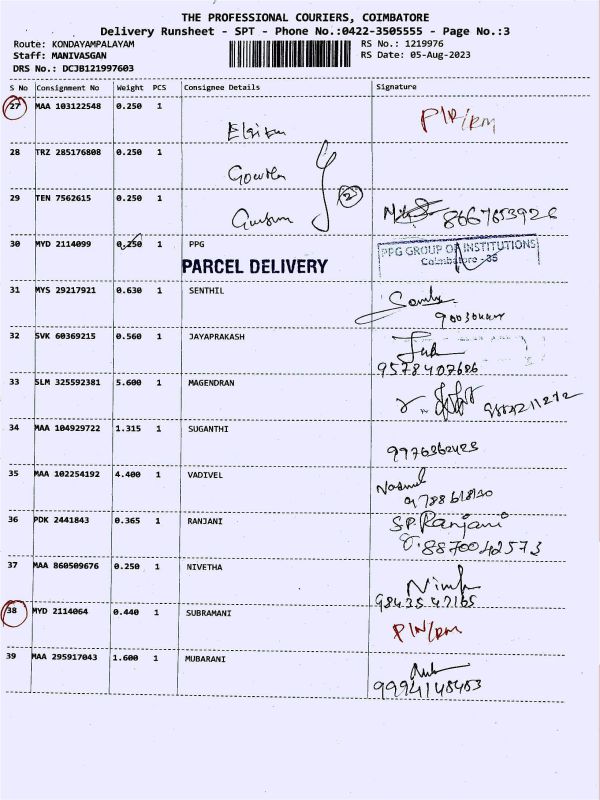 THE PROFESSIONAL COURIERS, COIMBATORE
Delivery Runsheet - SPT - Phone No.:0422-3505555 - Page No.:3
Route: KONDAYAMPALAYAM RS No.: 1219976
Staff: MANIVASGAN RS Date: 05-Aug-2023
DRS No.: DCJB121997603
S No Consignment No Weight PCS Consignee Details Signature
27 MAA 103122548 0.250 1
28 TRZ 285176808 0.250 1
Gowtham
29 TEN 7562615 0.250 1
2
8667653926
30 MYD 2114099 0.250 1 PPG
PPG GROUP OF INSTITUTIONS
Coimbatore - 35
PARCEL DELIVERY
31 MYS 29217921 0.630 1 SENTHIL
32 SVK 60369215 0.560 1 JAYAPRAKASH
9578407686
33 SLM 325592381 5.600 1 MAGENDRAN
34 MAA 104929722 1.315 1 SUGANTHI
35 MAA 102254192 4.400 1 VADIVEL
36 PDK 2441843 0.365 1 RANJANI
S.P.Ranjani
8870042573
37 MAA 860509676 0.250 1 NIVETHA
9843547165
38 MYD 2114064 0.440 1 SUBRAMANI
39 MAA 295917043 1.600 1 MUBARANI
9994148453